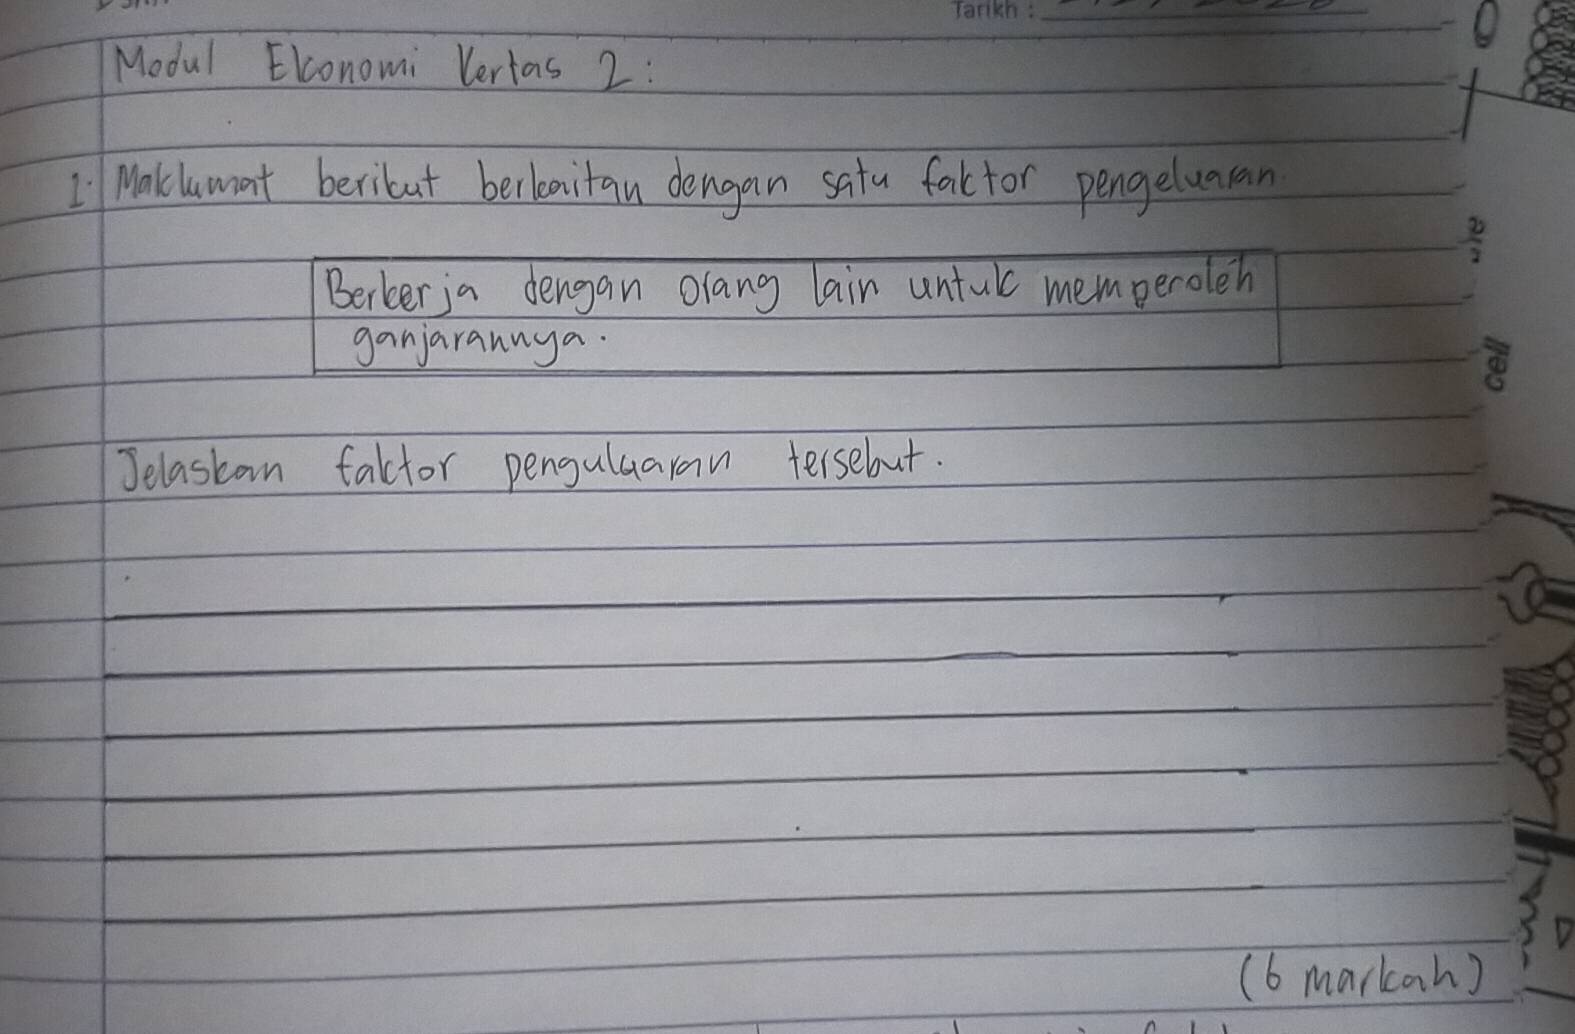 Tarikh :
Modul Ekonomi Kertas 2:
1. Maklumat berikut berkaitan dengan satu faktor pengeluaran.
Berkerja dengan orang lain untuk memperoleh
ganjarannya.
Jelaskan faktor penguluaran tersebut.
(6 markah)
cell